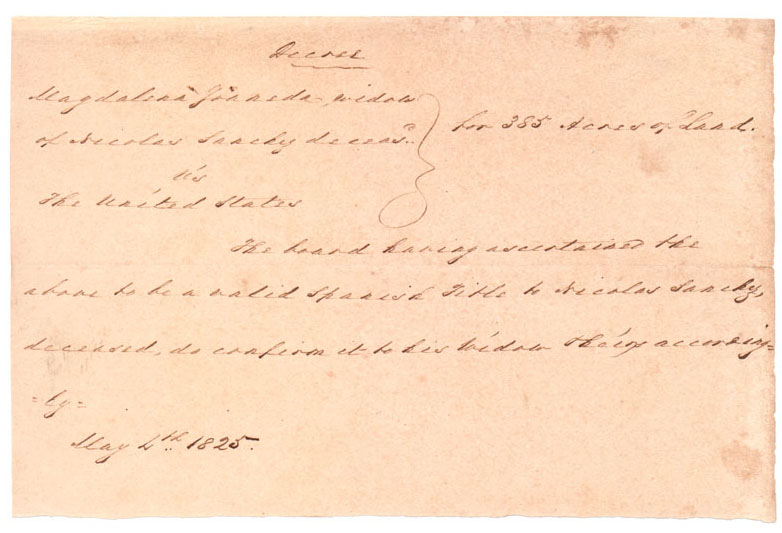 Decree
Magdalena Joaneda, widow
of Nicolas Sanchz deceasd.
for 385 Acres of Land.
vs
The United States
The board having ascertained the
above to be a valid Spanish Title to Nicolas Sanchz,
deceased, do confirm it to his Widow according=
=ly=
May 4th. 1825.